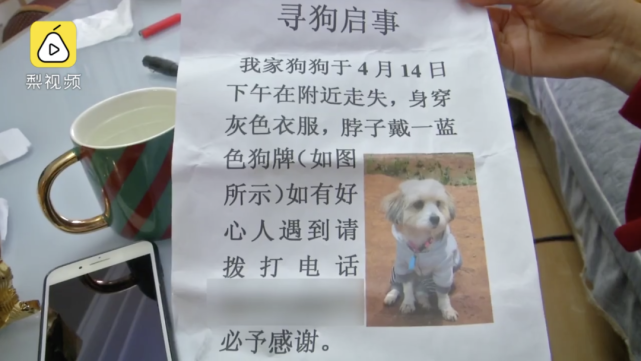 梨视频
寻狗启事
我家狗狗于4月14日
下午在附近走失，身穿
灰色衣服，脖子戴一蓝
色狗牌(如图
所示)如有好
心人遇到请
拨打电话
必予感谢。